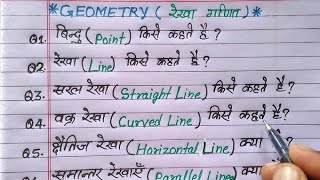 *GEOMETRY ( रेखा गणित )*
Q1. बिन्दु ( Point ) किसे कहते है ?
Q2. रेखा ( Line ) किसे कहते है ?
Q3. सरल रेखा ( Straight Line ) किसे कहते है ?
Q4. वक्र रेखा ( Curved Line ) किसे कहते है ?
Q5. क्षैतिज रेखा ( Horizontal Line ) क्या है ?
समान्तर रेखाएँ ( Parallel Line